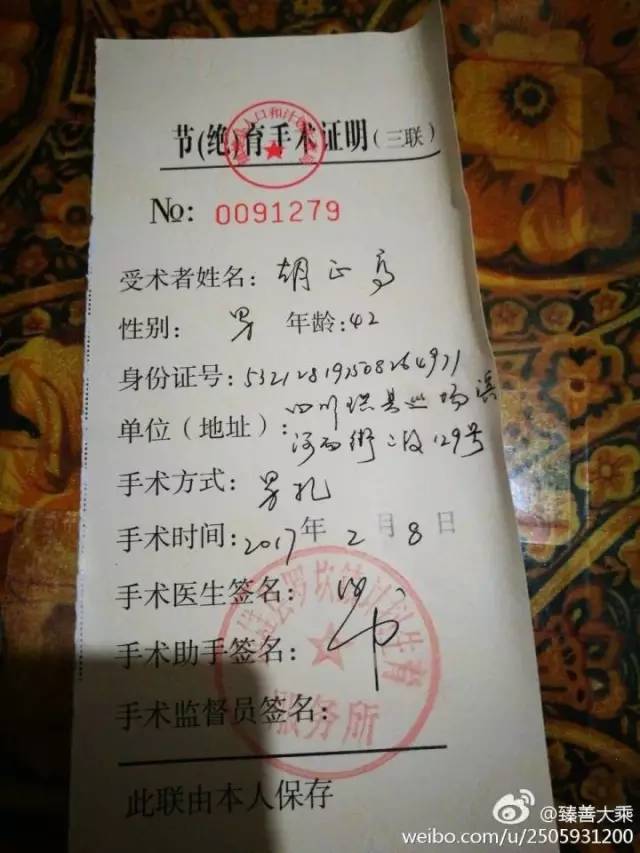 节(绝)育手术证明(三联)
No: 0091279
受术者姓名: 胡正高
性别: 男 年龄: 42
身份证号: 532128197508264971
单位(地址): 四川珙县巡场滨
河西街二段129号
手术方式: 男扎
手术时间: 2017年2月8日
手术医生签名:
手术助手签名:
手术监督员签名:
镇雄县罗坎镇计划生育
服务所
此联由本人保存
@臻善大乘
weibo.com/u/2505931200